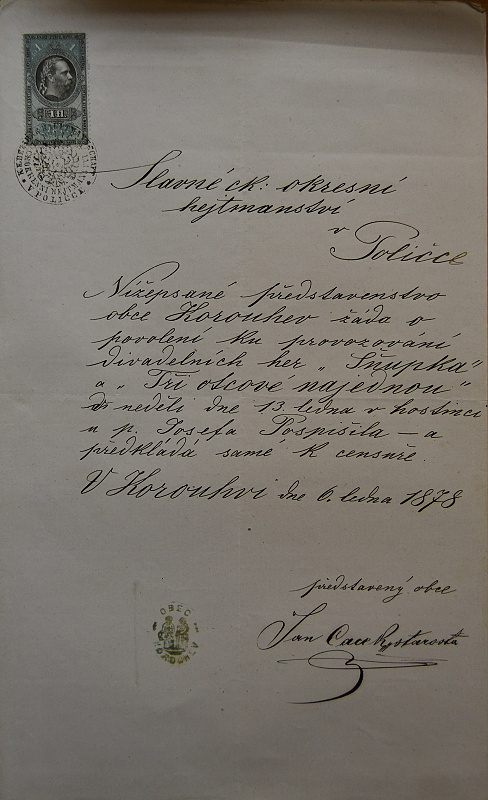 1
1 fl
V POLIČCE
Slavné ck: okresní
hejtmanství
v
Poličce
Nížepsané představenstvo
obce Korouhev žádá o
povolení ku provozování
divadelních her „Šňupka"
a „Tři otcové najednou"
neděli dne 13. ledna v hostinci
u p. Josefa Pospíšila — a
předkládá samé k censuře.
V Korouhvi dne 6. ledna 1878
představený obce
Jan starosta
OBEC
KOROUHEV